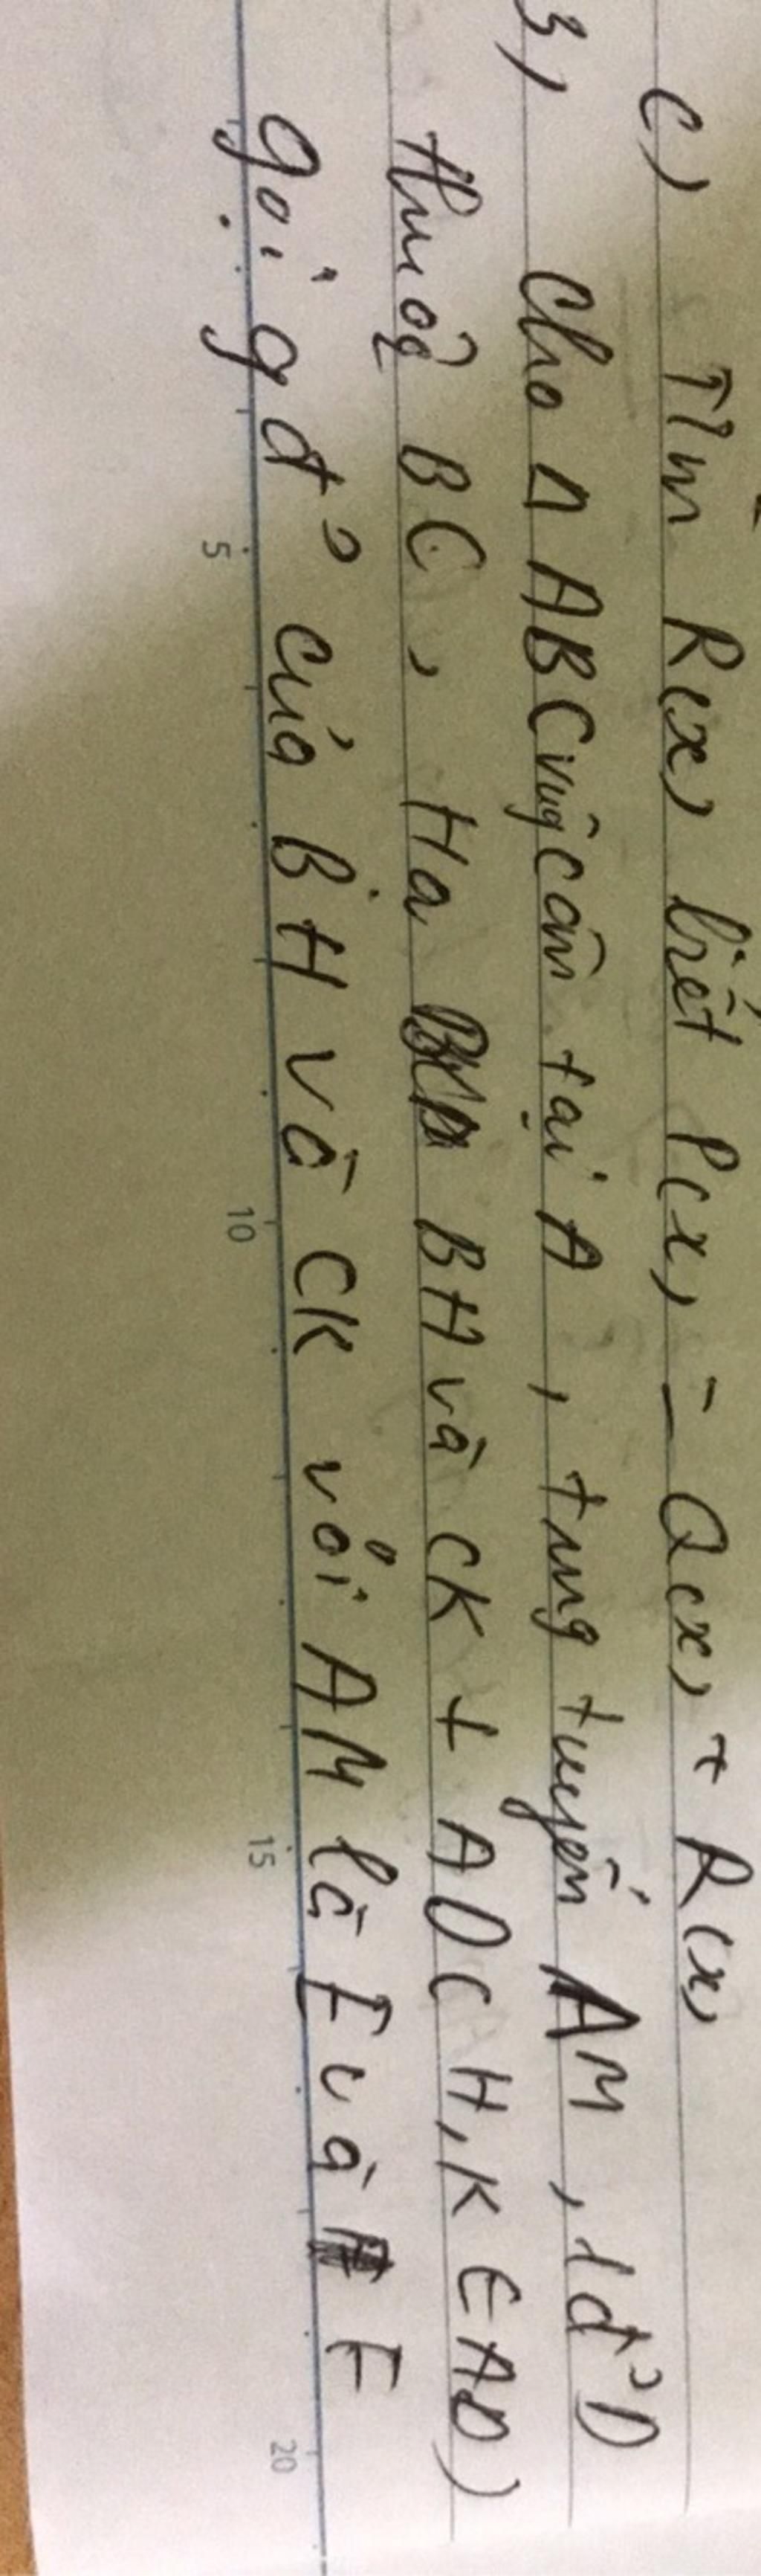 c) Tìm R(x) biết P(x) = Q(x) + R(x)
3, Cho Δ ABC vug cân tại A, trung tuyến AM, 1 đ' D
thuộc BC, Hạ BH và CK ⊥ AD ( H, K ∈ AD)
gọi gđ' của BH và CK với AM là E và F
5
10
15
20